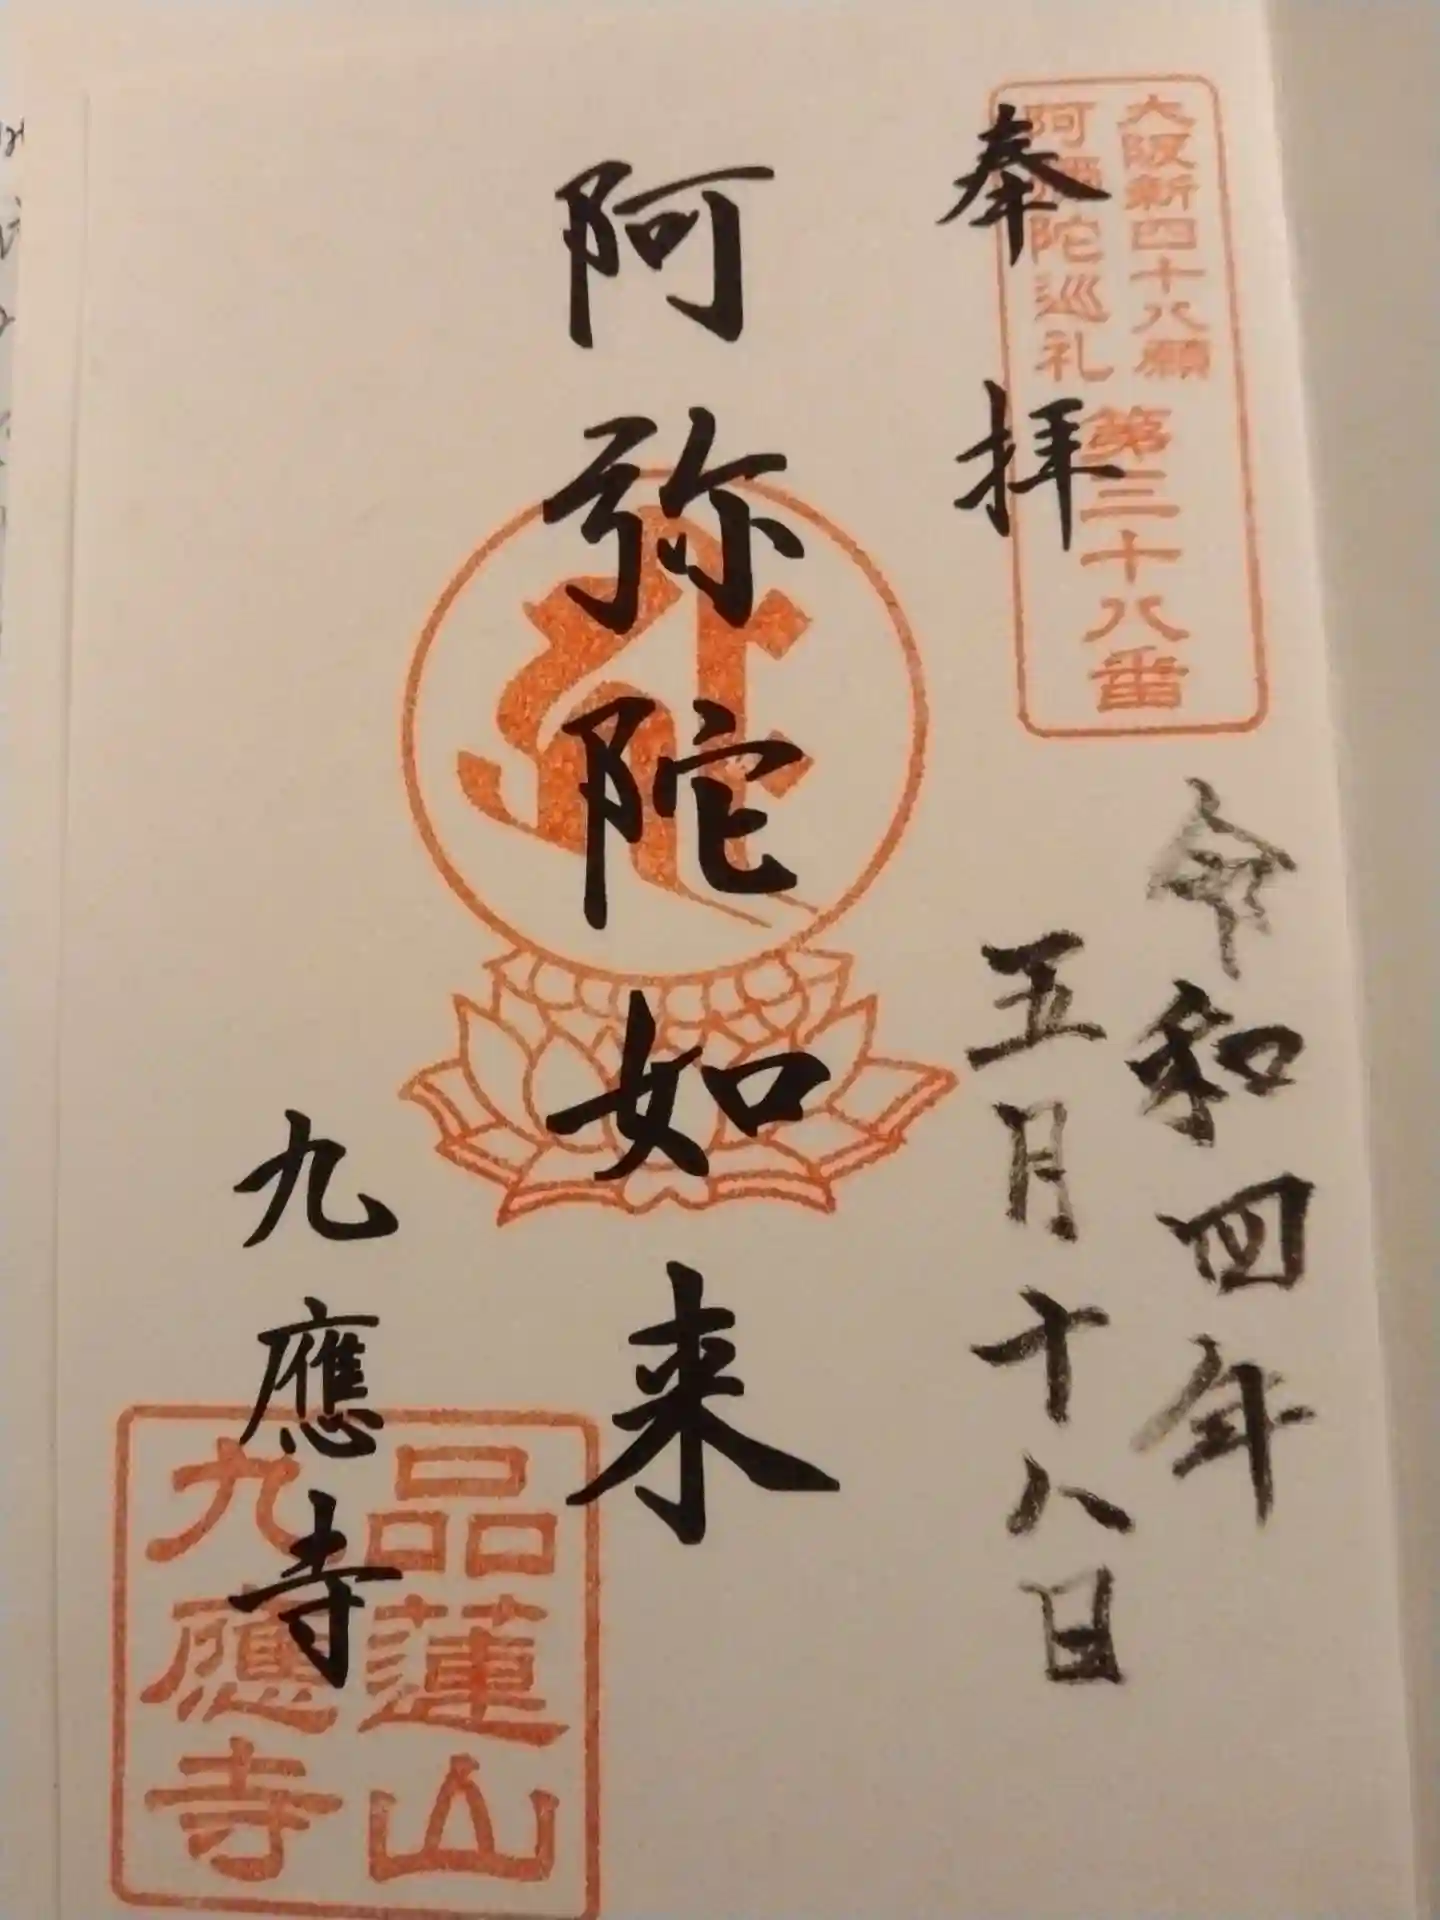 大阪新四十八願
阿彌陀巡礼
第三十八番
奉拝
令和四年
五月十八日
阿弥陀如来
九應寺
品蓮山
九應寺